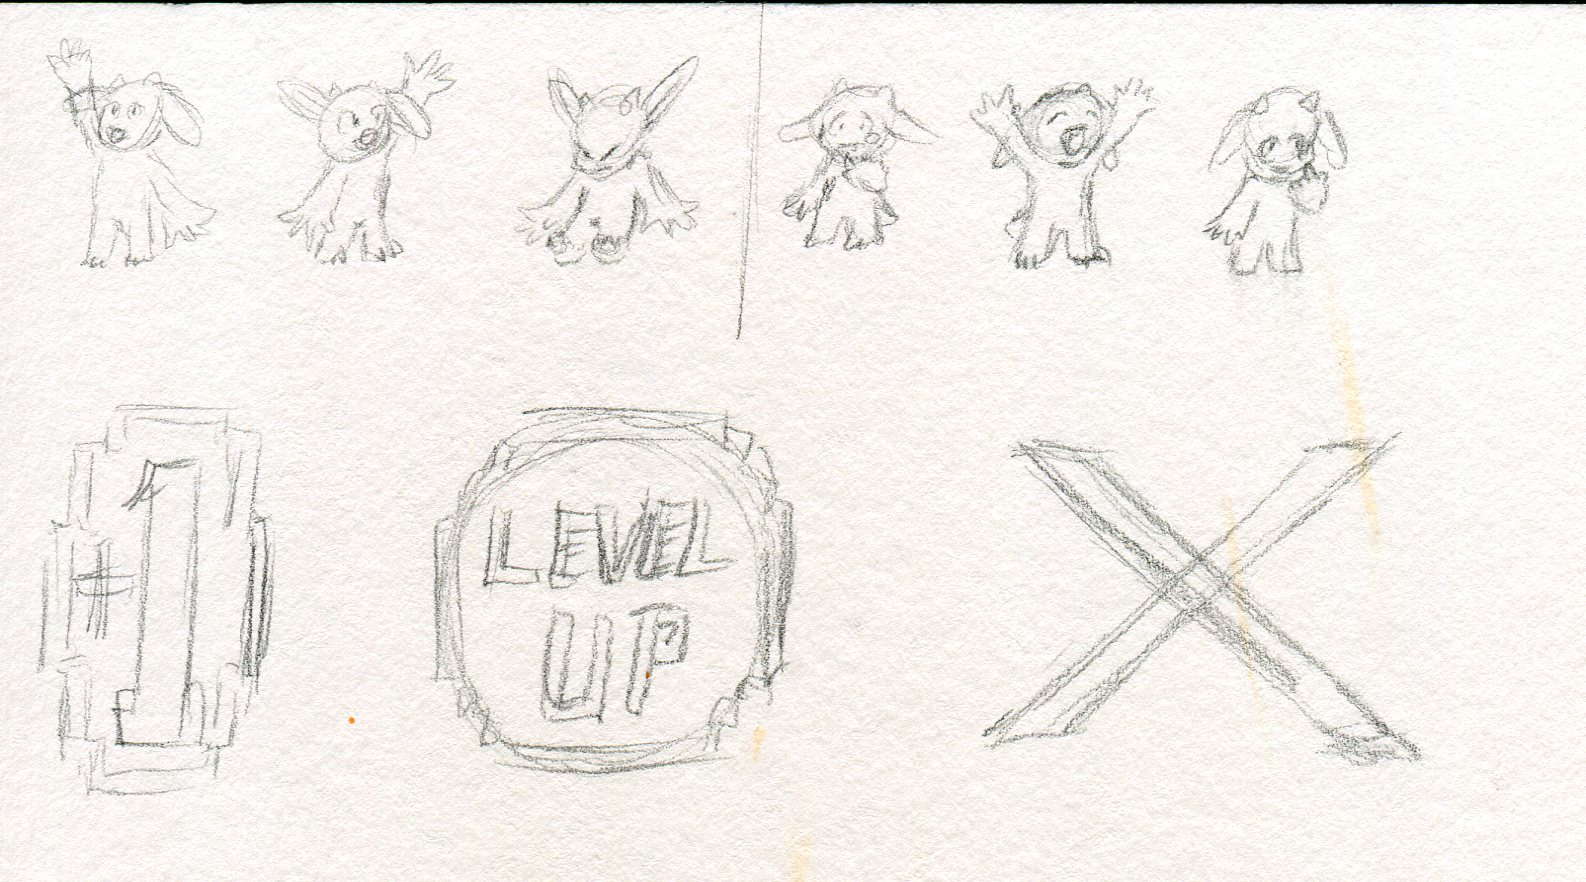 #1
LEVEL
UP
X